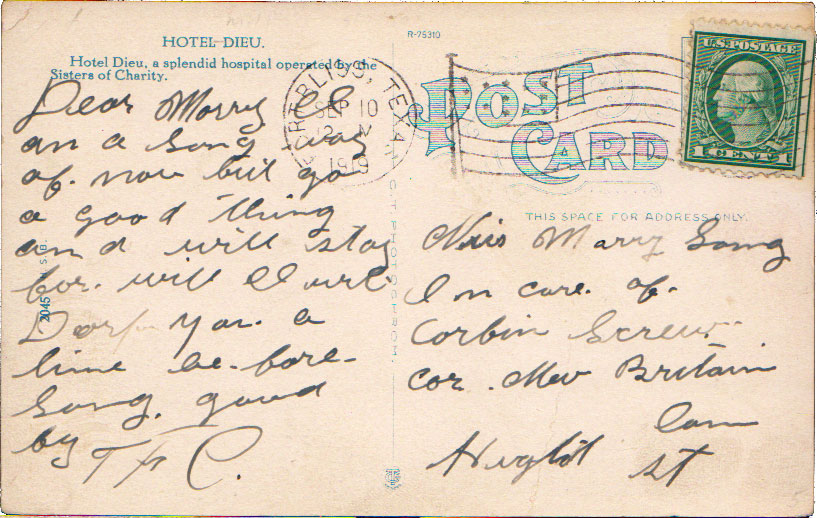 HOTEL DIEU.
Hotel Dieu, a splendid hospital operated by the
Sisters of Charity.
Dear Marry
an a long way
of. now but got
a good thing
and will stay
for. will
you. a
line be-fore-
long. good
by T F C.
2045
R-75310
FORT BLISS, TEXAS
SEP 10
12 M
1919
POST
CARD
U.S. POSTAGE
1 CENT 1
THIS SPACE FOR ADDRESS ONLY.
C.T. PHOTOCHROM.
Miss Marry Long
In care. of.
Corbin Screw.
cor. New Britain
Conn
st